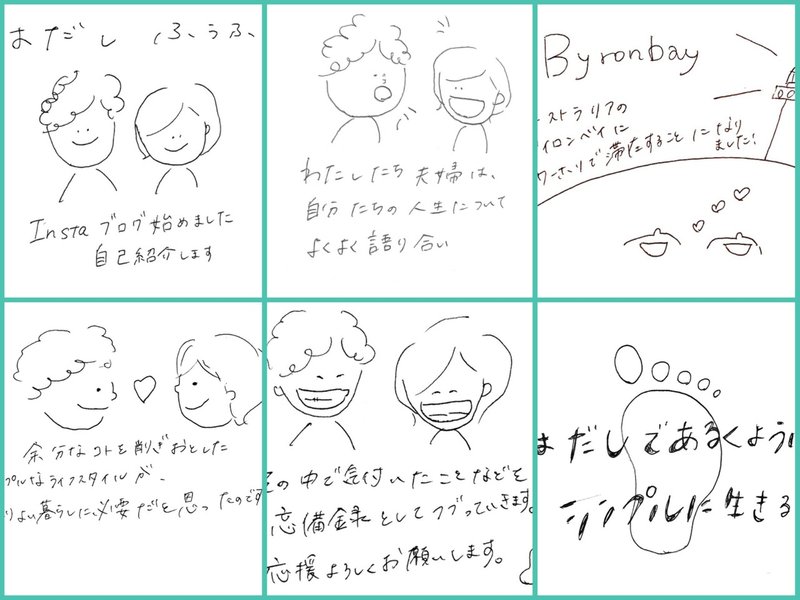 はだし ふうふ
Instaブログ始めました
自己紹介します
わたしたち夫婦は、
自分たちの人生について
よくよく語り合い
Byronbay
ーストラリアの
イロンベイに
ワーホリで滞在することになり
ました!
余分なコトを削ぎおとした
プルなライフスタイルが、
りよい暮らしに必要だと思ったのです
の中で気付いたことなどを
忘備録としてつづっていきます。
応援よろしくお願いします。
はだしであるくように
シンプルに生きる